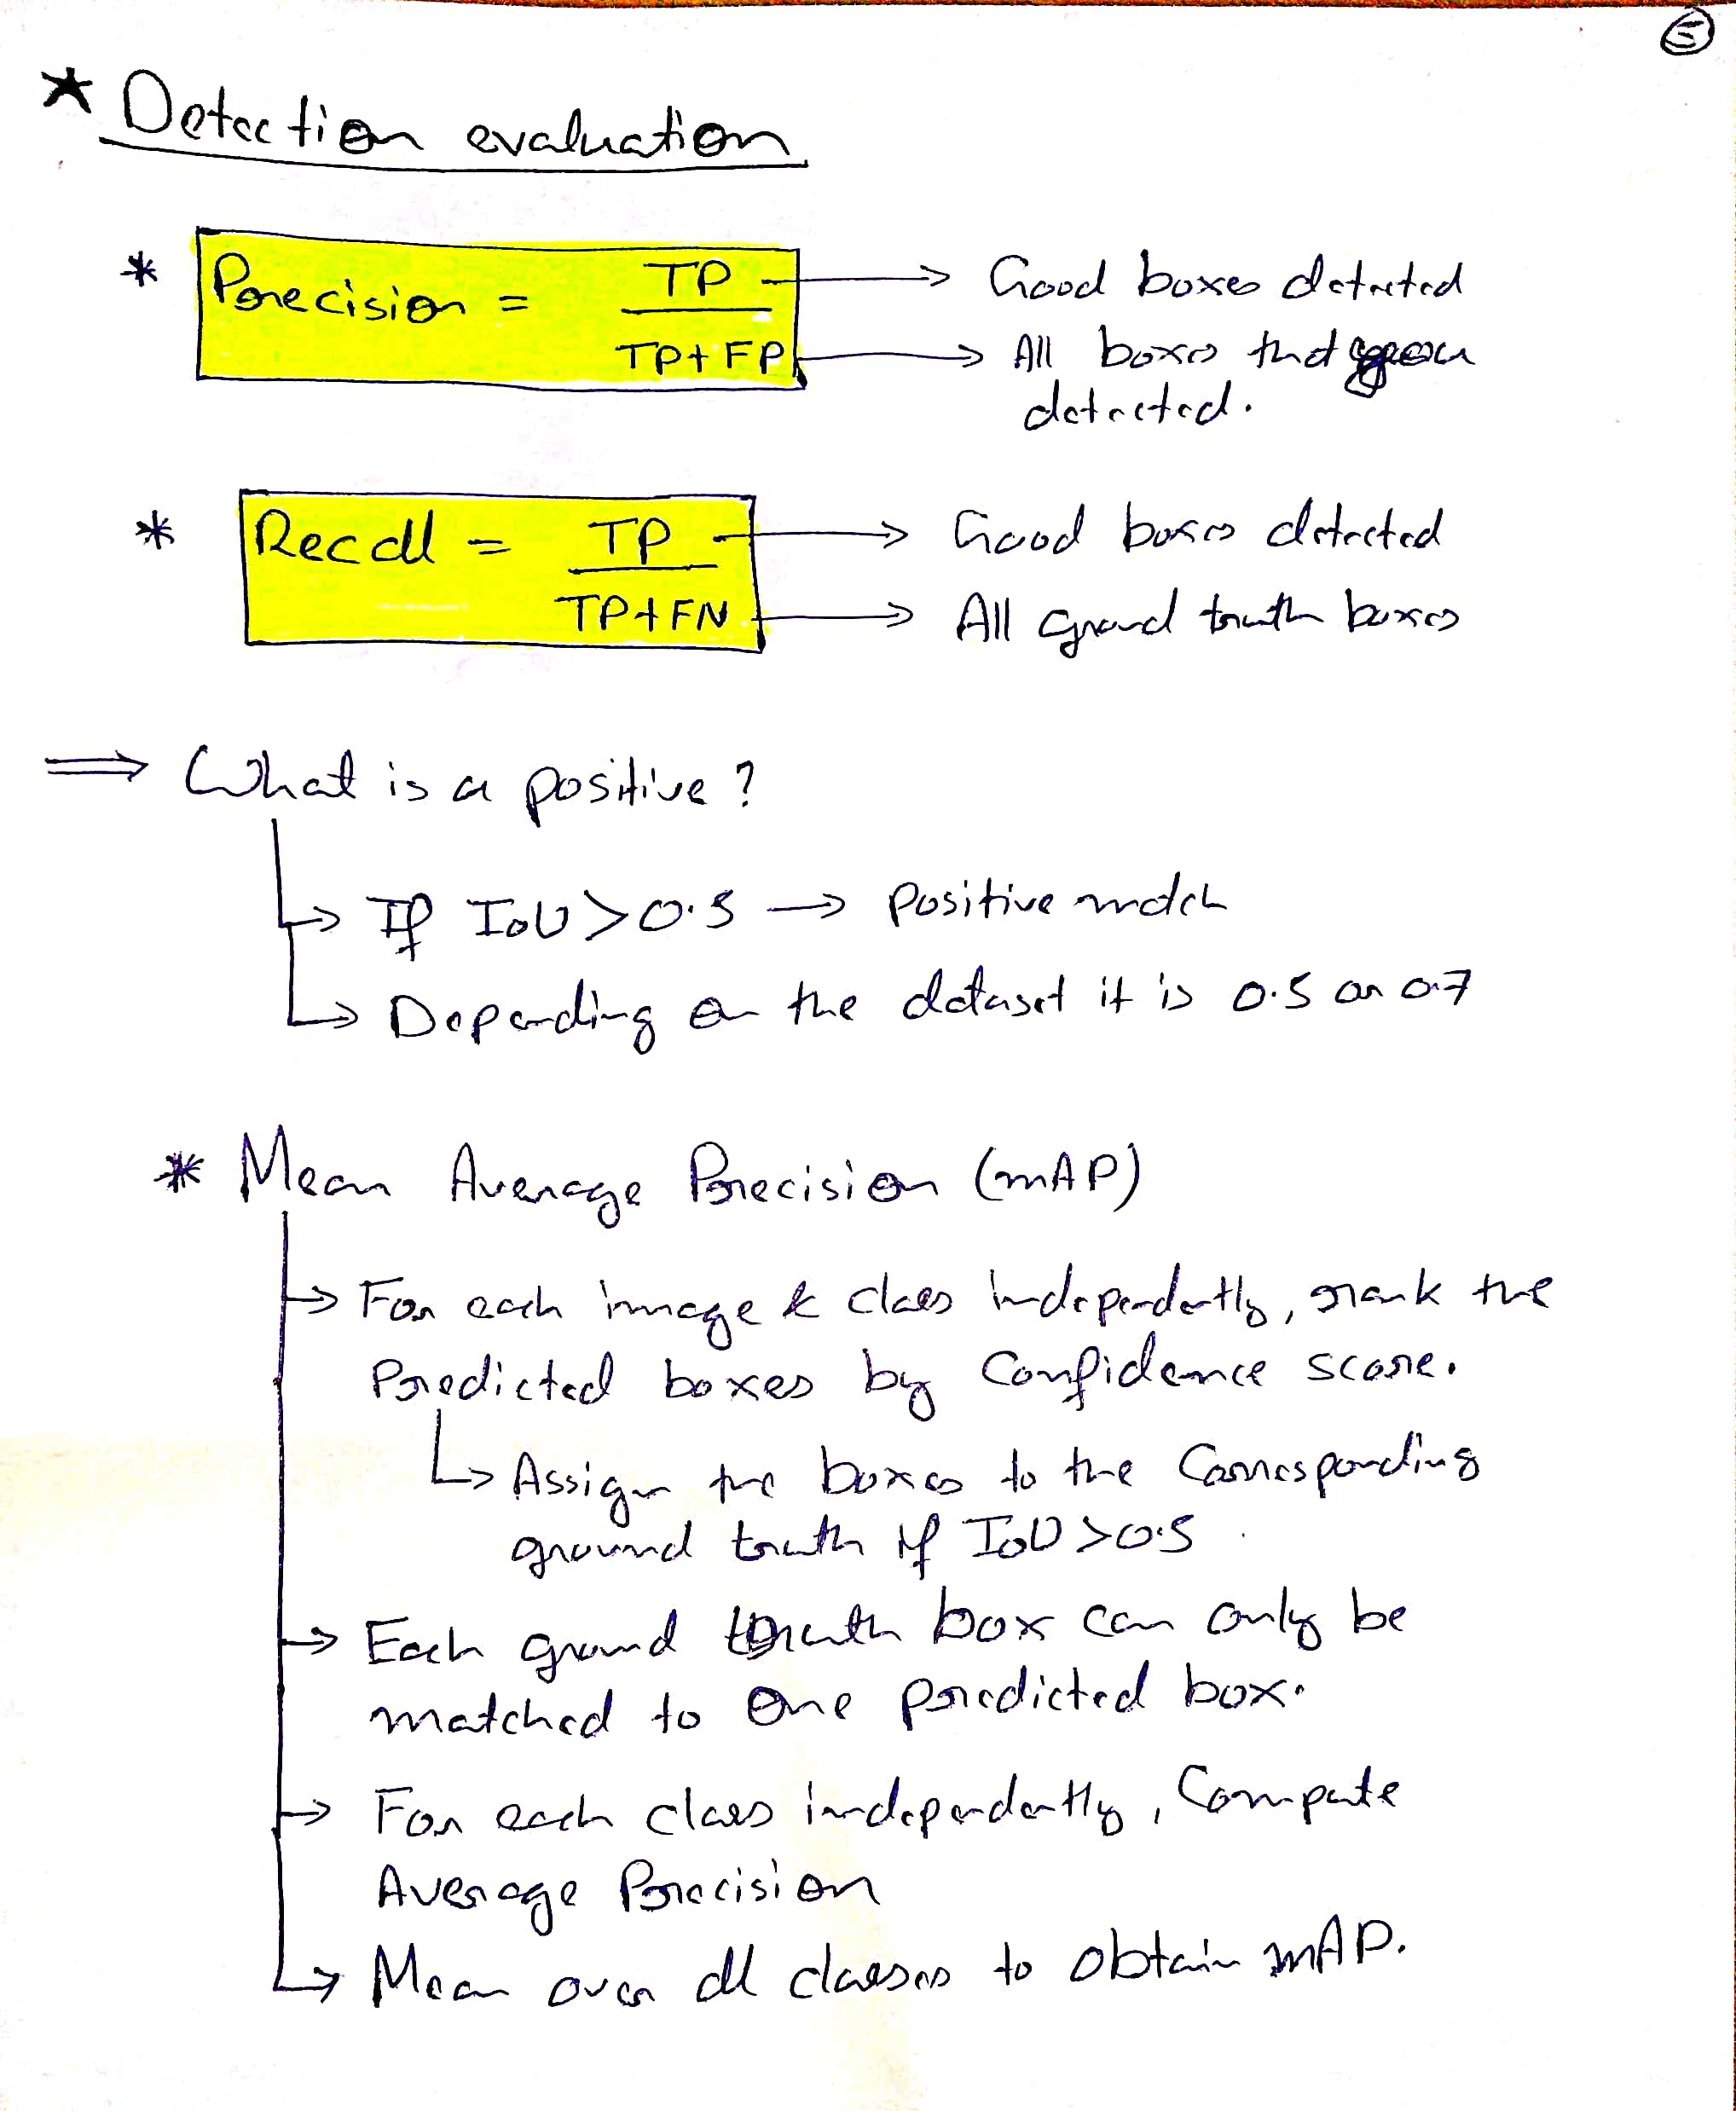 * Detection evaluation
* Precision = TP / TP + FP → Good boxes detected
→ All boxes that
detected.
* Recall = TP / TP + FN → Good boxes detected
→ All ground truth boxes
⇒ What is a positive?
→ If IoU > 0.5 → Positive match
→ Depending on the dataset it is 0.5 or 0.7
* Mean Average Precision (mAP)
→ For each image & class independently, rank the
Predicted boxes by Confidence score.
→ Assign the boxes to the Corresponding
ground truth if IoU > 0.5
→ Each ground truth box can only be
matched to one predicted box.
→ For each class independently, Compute
Average Precision
→ Mean over all classes to obtain mAP.